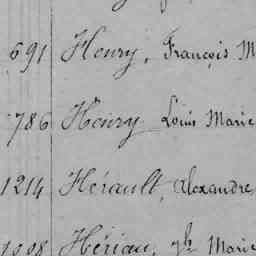 691 Henry, François M
786 Henry Louis Marie
1214 Hérault, Alexandre
1008 Hériau, Jh Marie